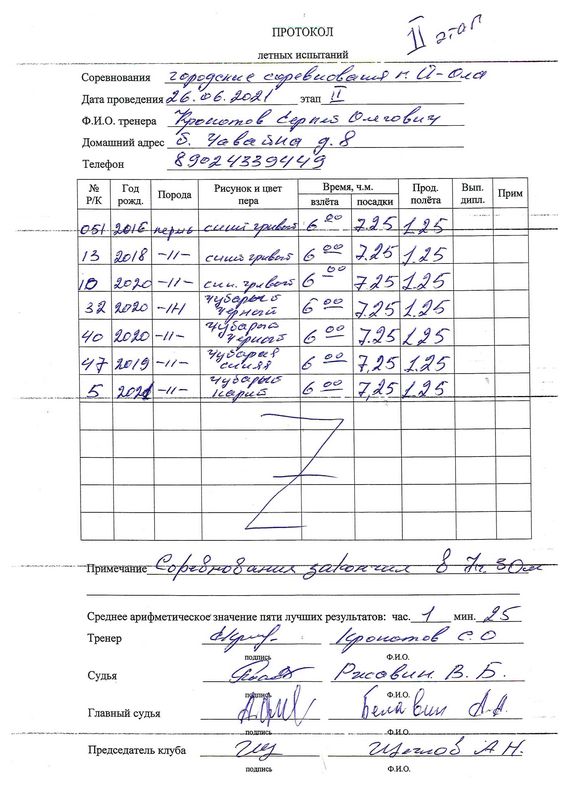 II этап
ПРОТОКОЛ
летных испытаний
Соревнования городские соревнования г. Й-Ола
Дата проведения 26.06.2021 этап II
Ф.И.О. тренера Кропотов Сергей Олегович
Домашний адрес б. Чавайна д. 8
Телефон 89024339449
№ Р/К Год рожд. Порода Рисунок и цвет пера Время, ч.м. взлёта посадки Прод. полёта Вып. дипл. Прим
051 2016 пермь синий гривый 6 00 7.25 1.25
13 2018 -11- синий гривый 6 00 7.25 1.25
10 2020 -11- син. гривый 6 00 7.25 1.25
32 2020 -11- чубарый черный 6 00 7.25 1.25
40 2020 -11- чубарый черный 6 00 7.25 1.25
47 2019 -11- чубарая синяя 6 00 7,25 1.25
5 2021 -11- чубарый карий 6 00 7,25 1.25
Z
Примечание Соревнования закончил в 7ч. 30м
Среднее арифметическое значение пяти лучших результатов: час. 1 мин. 25
Тренер Кропотов С. О
подпись Ф.И.О.
Судья Рисовин. В. Б.
подпись Ф.И.О.
Главный судья Белавин А.А.
подпись Ф.И.О.
Председатель клуба Щеглов А Н.
подпись Ф.И.О.